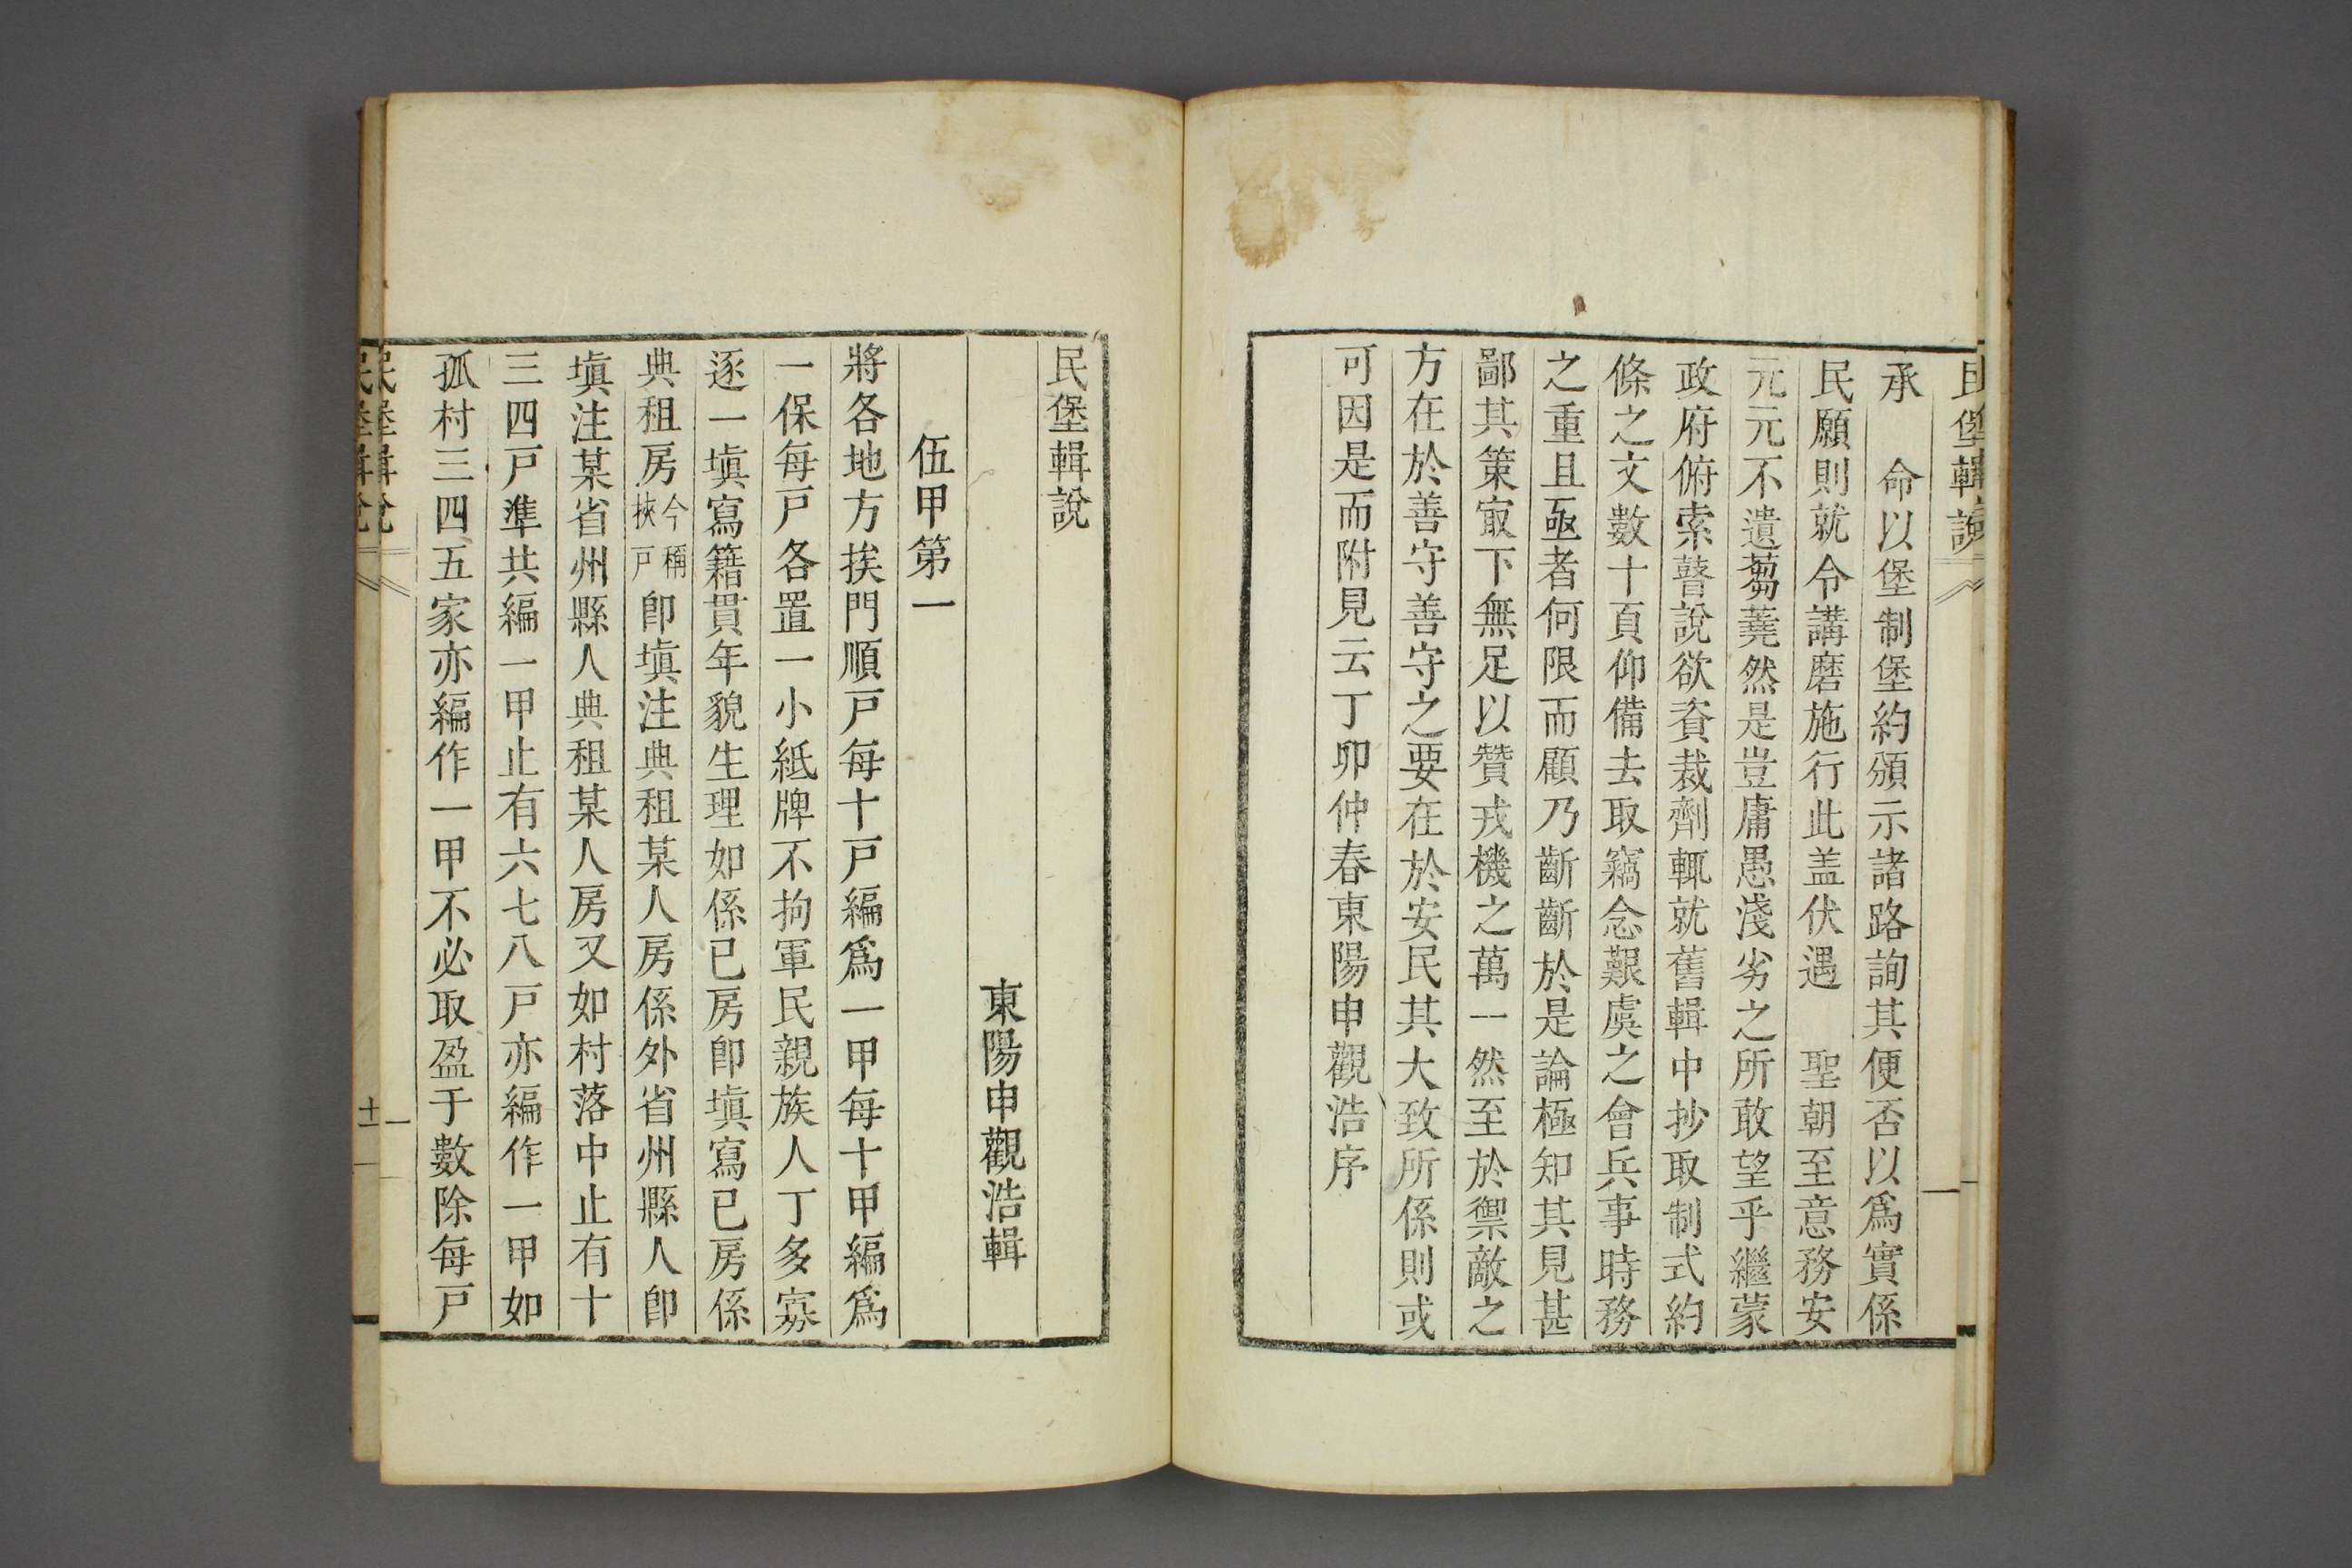 民堡輯說
承　命以堡制堡約頒示諸路詢其便否以爲實係
民願則就令講磨施行此盖伏遇　聖朝至意務安
元元不遺蒭蕘然是豈庸愚淺劣之所敢望乎繼蒙
政府俯索瞽說欲資裁劑輒就舊輯中抄取制式約
條之文數十頁仰備去取竊念艱虞之會兵事時務
之重且亟者何限而顧乃齗齗於是論極知其見甚
鄙其策寂下無足以贊戎機之萬一然至於禦敵之
方在於善守善守之要在於安民其大致所係則或
可因是而附見云丁卯仲春東陽申觀浩序
民堡輯說
東陽申觀浩輯
伍甲第一
將各地方挨門順戸每十戸編爲一甲每十甲編爲
一保每戸各置一小紙牌不拘軍民親族人丁多寡
逐一塡寫籍貫年貌生理如係已房卽塡寫已房係
典租房今稱挾戸卽塡注典租某人房係外省州縣人卽
塡注某省州縣人典租某人房又如村落中止有十
三四戸準共編一甲止有六七八戸亦編作一甲如
孤村三四五家亦編作一甲不必取盈于數除每戸
民堡輯說
一
十一